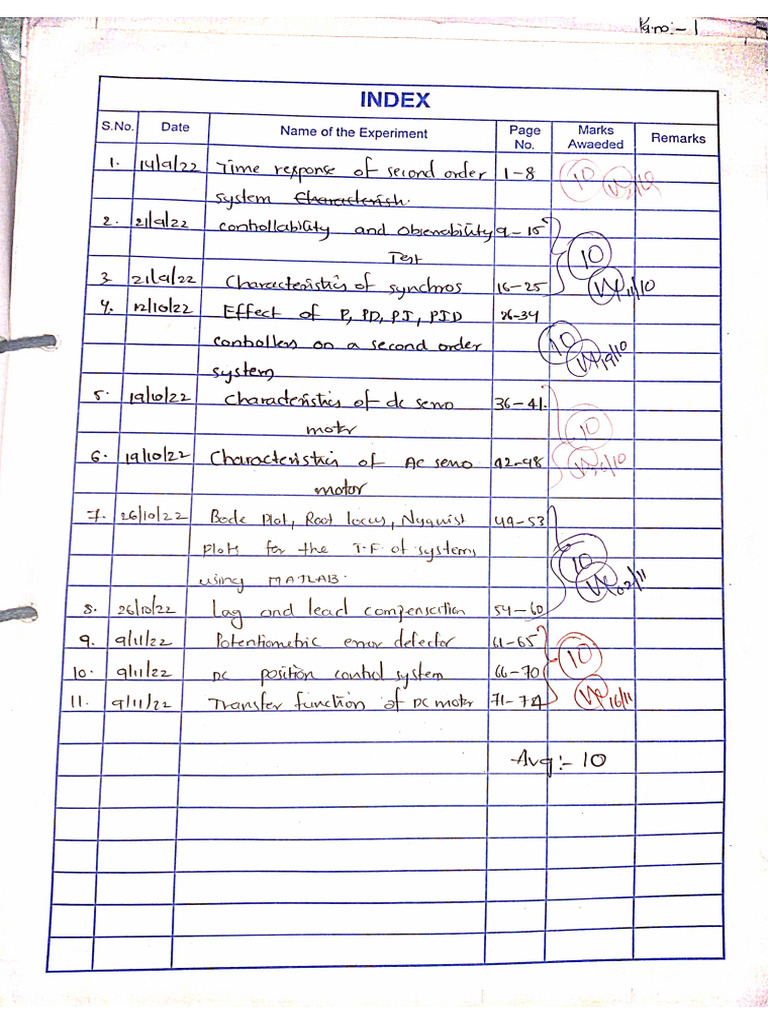 Pg.no:- 1
INDEX
S.No. Date Name of the Experiment Page No. Marks Awaeded Remarks
1. 14/9/22 Time response of second order 1-8 10
system Characterish.
2. 21/9/22 controllability and Observability 9-15 10
Test
3. 21/9/22 Characteristics of synchros 16-25 11/10
4. 12/10/22 Effect of P, PD, PI, PID 26-34 10
controllers on a second order 19/10
system
5. 19/10/22 Characteristics of dc servo 36-41. 10
motor
6. 19/10/22 Characteristics of Ac servo 42-48
motor
7. 26/10/22 Bode Plot, Root locus, Nyquist 49-53
plots for the T.F of systems 10
using MATLAB. 02/11
8. 26/10/22 Lag and lead compensation 54-60
9. 9/11/22 Potentiometric error detector 61-65 10
10. 9/11/22 DC position control system 66-70
11. 9/11/22 Transfer function of DC motor 71-74 16/11
Avg:- 10